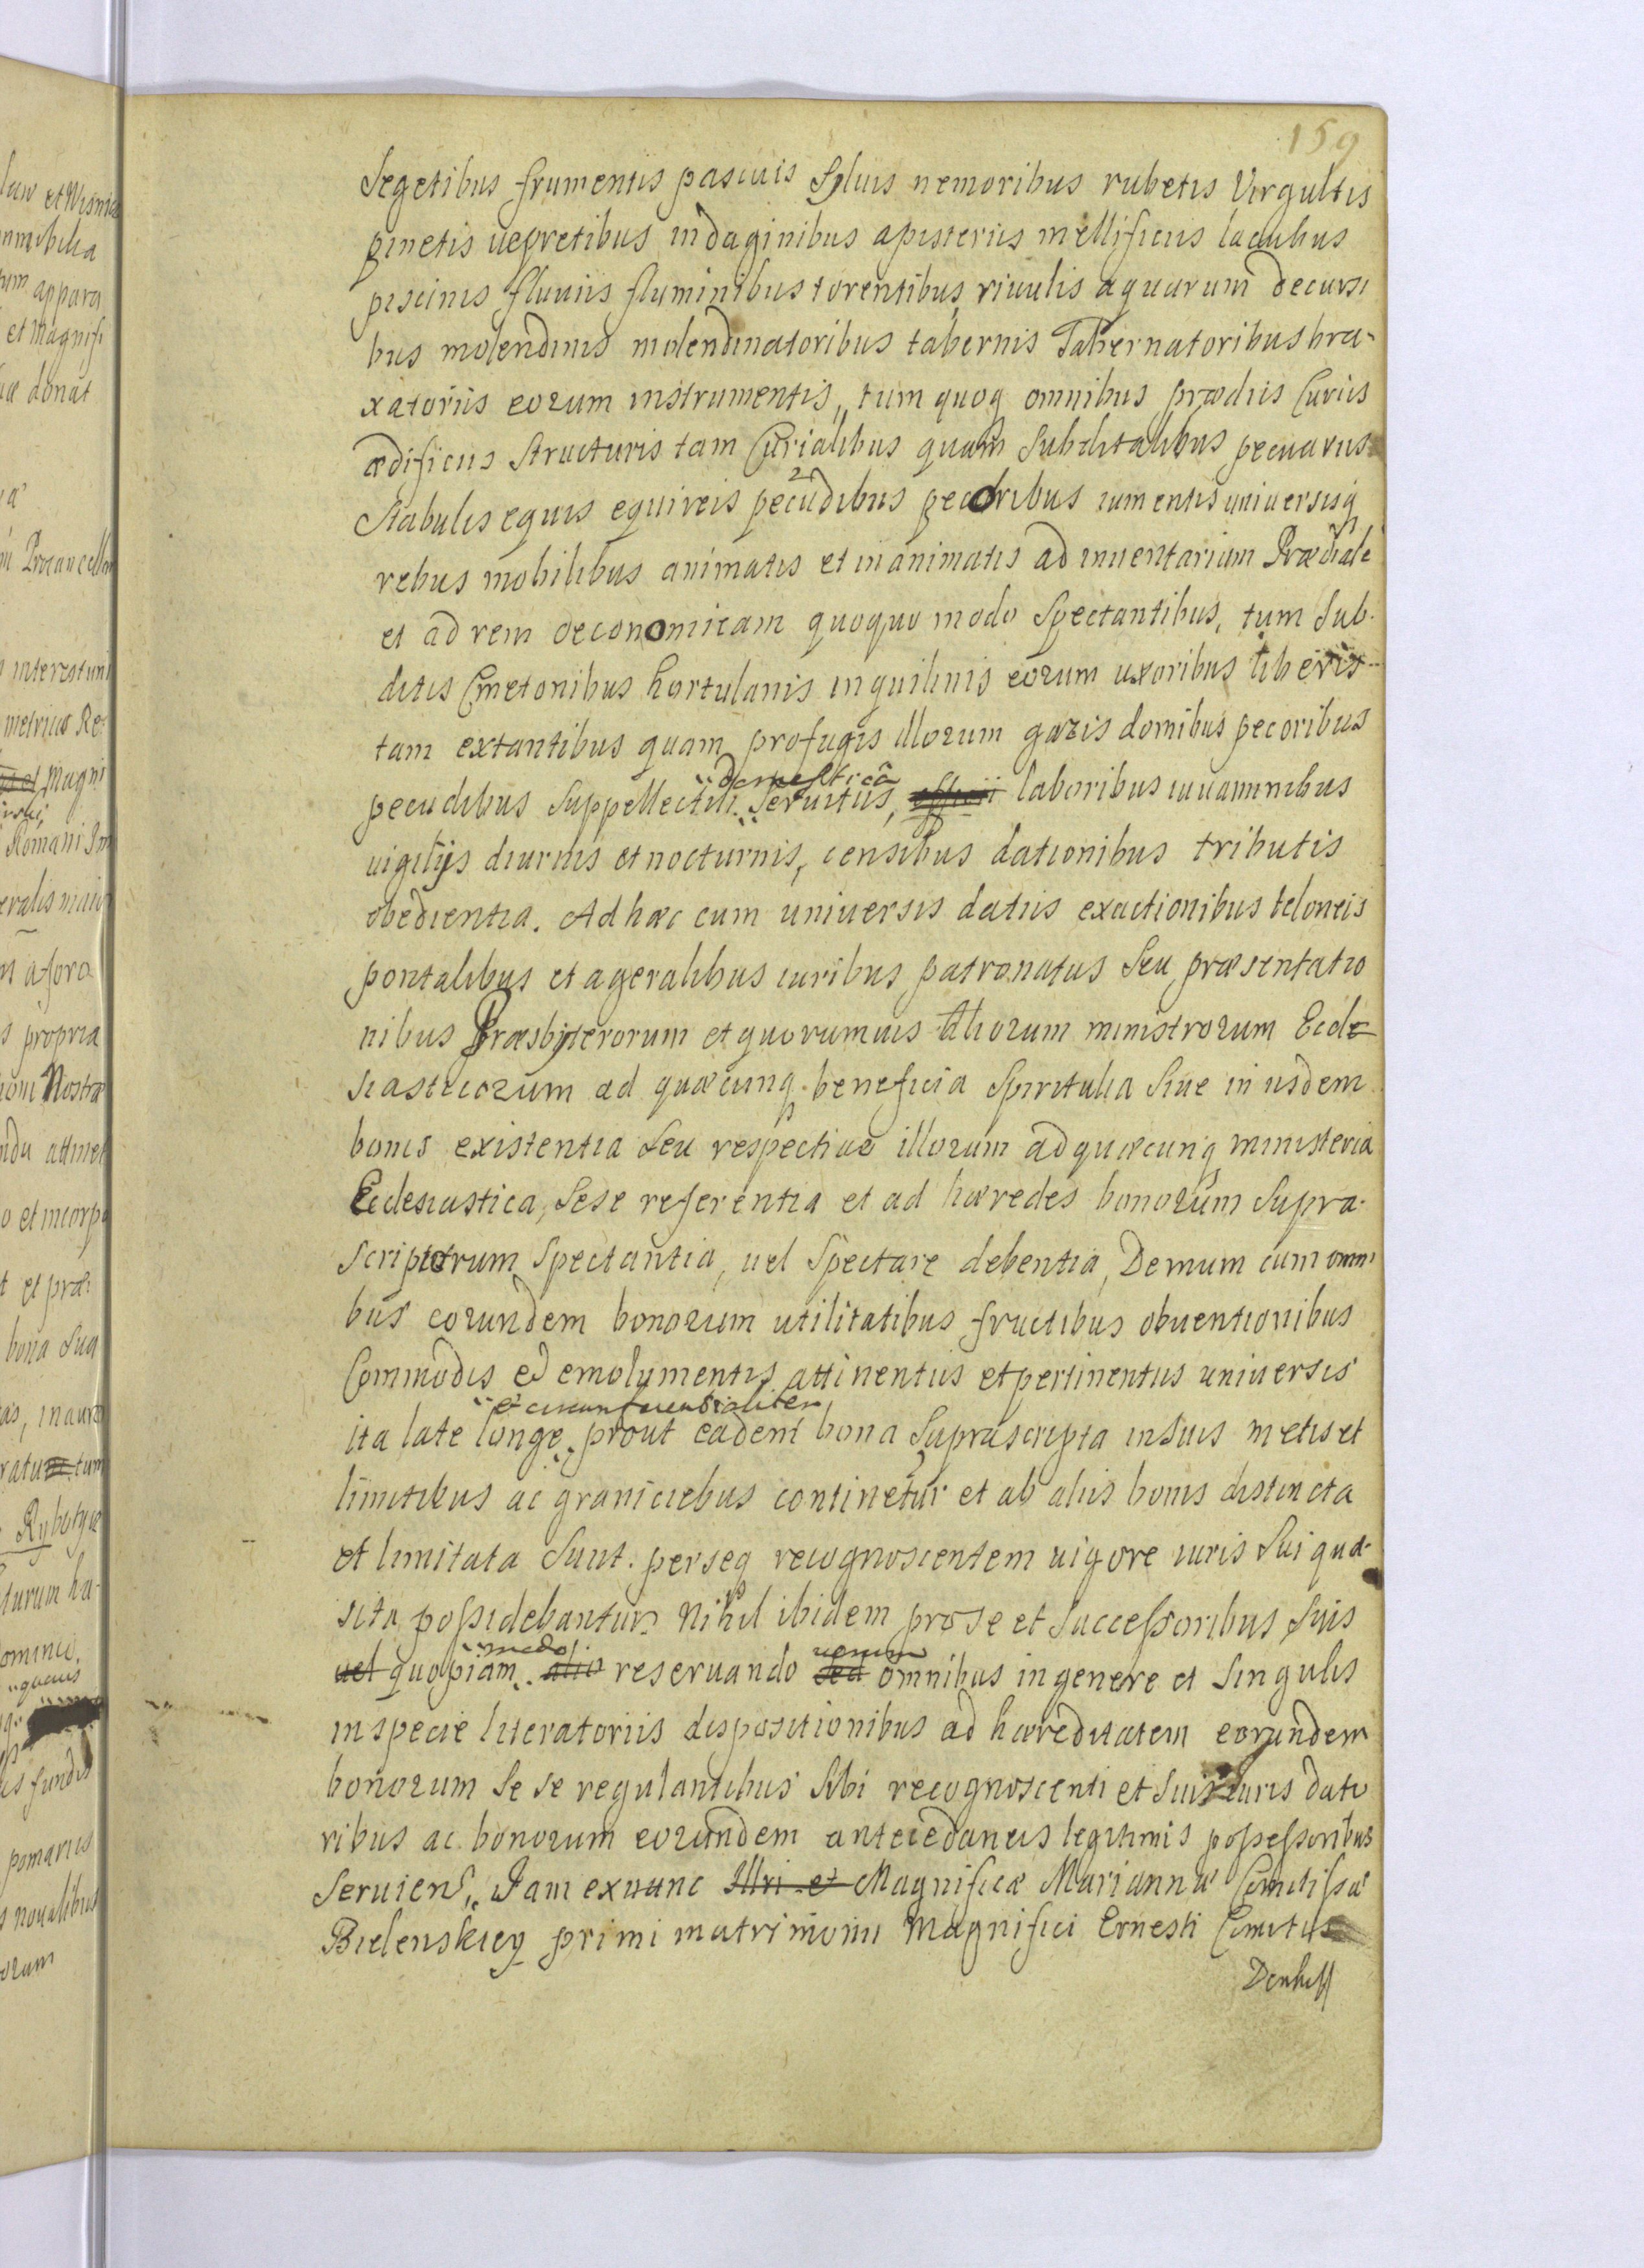 159
Segetibus frumentis pascuis Syluis nemoribus rubetis Virgultis
pinetis uepretibus indaginibus apisteriis mellificiis lacubus
piscinis fluuiis fluminibus torentibus riuulis aquarum decursi
bus molendinis molendinatoribus tabernis Tabernatoribus bra-
xatoriis eorum instrumentis, tum quoq omnibus prædiis Curiis
ædificiis Structuris tam Curialibus quam Subditalibus pecuariis
Stabulis equis equireis pecudibus pecoribus iumentis uniuersisq
rebus mobilibus animatis et inanimatis ad inuentarium Prædiale
et ad rem oeconomicam quoquo modo Spectantibus, tum Sub-
ditis Cmetonibus hortulanis inquilinis eorum uxoribus liberis
tam extantibus quam profugis illorum gazis domibus pecoribus
domesticâ
pecudibus Suppellectili Seruitiis, laboribus iuuaminibus
uigilijs diurnis et nocturnis, censibus dationibus tributis
obedientia. Ad hæc cum uniuersis datiis exactionibus teloneis
pontalibus et ageralibus iuribus patronatus Seu præsentatio
nibus Præsbyterorum et quorumuis aliorum ministrorum Eccle
siasticorum ad quæcunq beneficia Spiritulia Siue in iisdem
bonis existentia Seu respectiue illorum ad quæcunq ministeria
Ecclesiastica, Sese referentia et ad hæredes bonorum Supra-
scriptorum Spectantia, uel Spectare debentia, Demum cum omni
bus eorundem bonorum utilitatibus fructibus obuentionibus
Commodis et emolumentis attinentiis et pertinentiis uniuersis
et circumferentialiter
ita late longe prout eadem bona Suprascripta in Suis metis et
limitibus ac graniciebus continetur et ab aliis bonis distincta
et limitata Sunt. per seq recognoscentem uigore iuris Sui quæ-
sita possidebantur Nihil ibidem pro se et Successoribus Suis
modo uerum
uel quopiam alio reseruando sed omnibus in genere et Singulis
in specie literatoriis dispositionibus ad hæreditatem eorundem
bonorum Se se regulantibus Sibi recognoscenti et Suis iuris dato
ribus ac bonorum eorundem antecedaneis legitimis possessoribus
Seruien, Jam exnunc Illri et Magnificæ Mariannæ Comitissæ
Bielenskiey primi matrimonii Magnifici Ernesti Comitis
Denhoff